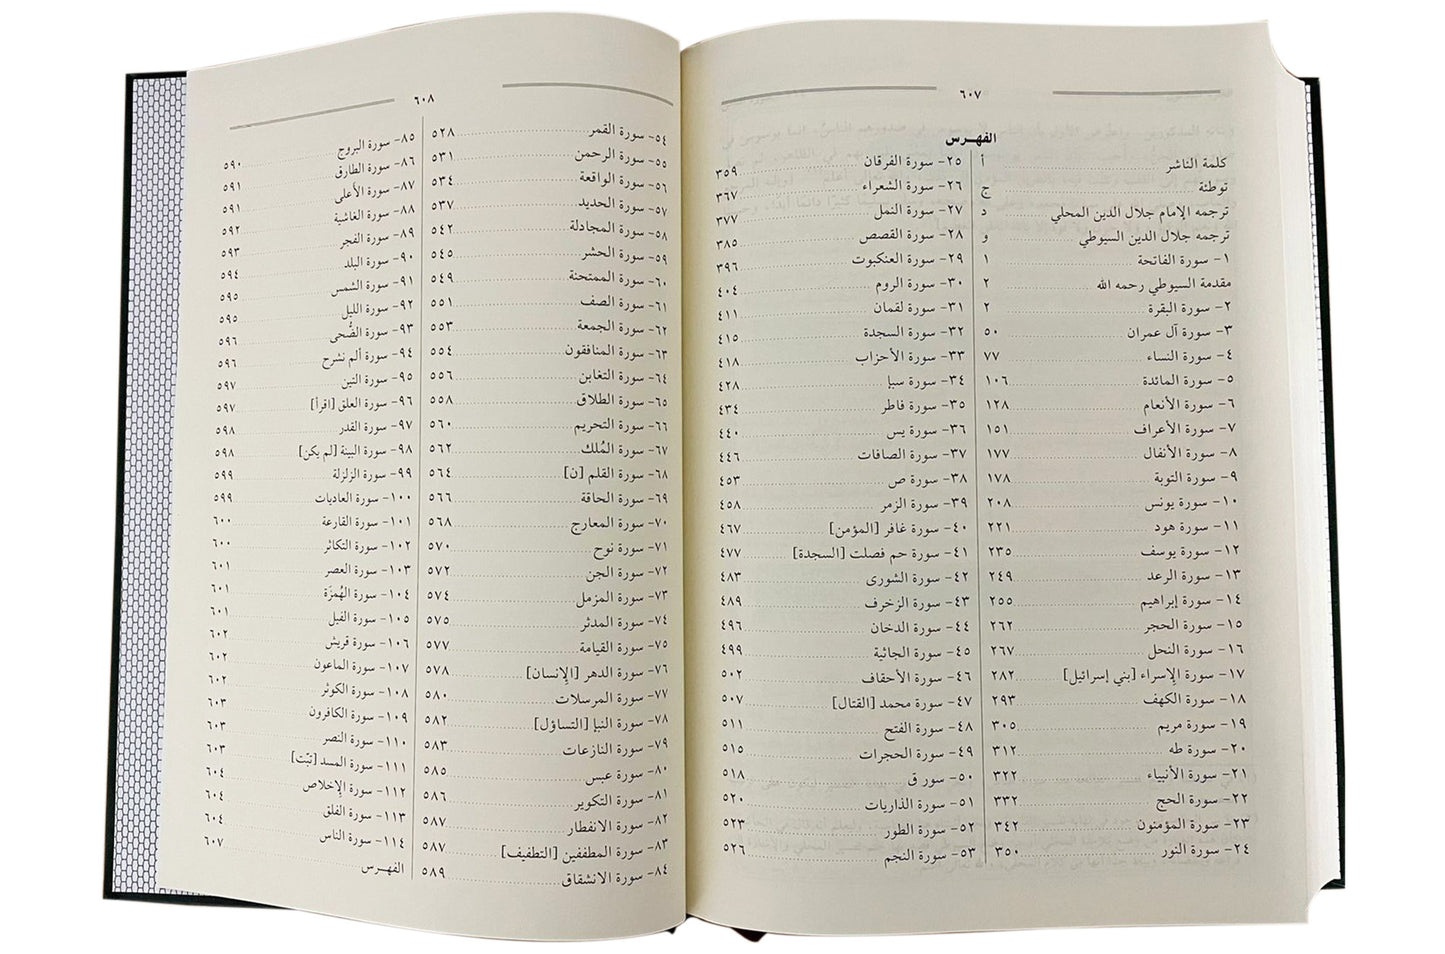 ٦٠٧
الفهـرس
كلمة الناشر أ
توطئة ج
ترجمه الإمام جلال الدين المحلي د
ترجمه جلال الدين السيوطي و
١- سورة الفاتحة ١
مقدمة السيوطي رحمه الله ٢
٢- سورة البقرة ٢
٣- سورة آل عمران ٥٠
٤- سورة النساء ٧٧
٥- سورة المائدة ١٠٦
٦- سورة الأنعام ١٢٨
٧- سورة الأعراف ١٥١
٨- سورة الأنفال ١٧٧
٩- سورة التوبة ١٧٨
١٠- سورة يونس ٢٠٨
١١- سورة هود ٢٢١
١٢- سورة يوسف ٢٣٥
١٣- سورة الرعد ٢٤٩
١٤- سورة إبراهيم ٢٥٥
١٥- سورة الحجر ٢٦٢
١٦- سورة النحل ٢٦٧
١٧- سورة الإسراء [بني إسرائيل] ٢٨٢
١٨- سورة الكهف ٢٩٣
١٩- سورة مريم ٣٠٥
٢٠- سورة طه ٣١٢
٢١- سورة الأنبياء ٣٢٢
٢٢- سورة الحج ٣٣٢
٢٣- سورة المؤمنون ٣٤٢
٢٤- سورة النور ٣٥٠
٢٥- سورة الفرقان ٣٥٩
٢٦- سورة الشعراء ٣٦٧
٢٧- سورة النمل ٣٧٧
٢٨- سورة القصص ٣٨٥
٢٩- سورة العنكبوت ٣٩٦
٣٠- سورة الروم ٤٠٤
٣١- سورة لقمان ٤١١
٣٢- سورة السجدة ٤١٥
٣٣- سورة الأحزاب ٤١٨
٣٤- سورة سبإ ٤٢٨
٣٥- سورة فاطر ٤٣٤
٣٦- سورة يس ٤٤٠
٣٧- سورة الصافات ٤٤٦
٣٨- سورة ص ٤٥٣
٣٩- سورة الزمر ٤٥٨
٤٠- سورة غافر [المؤمن] ٤٦٧
٤١- سورة حم فصلت [السجدة] ٤٧٧
٤٢- سورة الشورى ٤٨٣
٤٣- سورة الزخرف ٤٨٩
٤٤- سورة الدخان ٤٩٦
٤٥- سورة الجاثية ٤٩٩
٤٦- سورة الأحقاف ٥٠٢
٤٧- سورة محمد [القتال] ٥٠٧
٤٨- سورة الفتح ٥١١
٤٩- سورة الحجرات ٥١٥
٥٠- سور ق ٥١٨
٥١- سورة الذاريات ٥٢٠
٥٢- سورة الطور ٥٢٣
٥٣- سورة النجم ٥٢٦
٦٠٨
٥٤- سورة القمر ٥٢٨
٥٥- سورة الرحمن ٥٣١
٥٦- سورة الواقعة ٥٣٤
٥٧- سورة الحديد ٥٣٧
٥٨- سورة المجادلة ٥٤٢
٥٩- سورة الحشر ٥٤٥
٦٠- سورة الممتحنة ٥٤٩
٦١- سورة الصف ٥٥١
٦٢- سورة الجمعة ٥٥٣
٦٣- سورة المنافقون ٥٥٤
٦٤- سورة التغابن ٥٥٦
٦٥- سورة الطلاق ٥٥٨
٦٦- سورة التحريم ٥٦٠
٦٧- سورة المُلك ٥٦٢
٦٨- سورة القلم [ن] ٥٦٤
٦٩- سورة الحاقة ٥٦٦
٧٠- سورة المعارج ٥٦٨
٧١- سورة نوح ٥٧٠
٧٢- سورة الجن ٥٧٢
٧٣- سورة المزمل ٥٧٤
٧٤- سورة المدثر ٥٧٥
٧٥- سورة القيامة ٥٧٧
٧٦- سورة الدهر [الإنسان] ٥٧٨
٧٧- سورة المرسلات ٥٨٠
٧٨- سورة النبإ [التساؤل] ٥٨٢
٧٩- سورة النازعات ٥٨٣
٨٠- سورة عبس ٥٨٥
٨١- سورة التكوير ٥٨٦
٨٢- سورة الانفطار ٥٨٧
٨٣- سورة المطففين [التطفيف] ٥٨٧
٨٤- سورة الانشقاق ٥٨٩
٨٥- سورة البروج ٥٩٠
٨٦- سورة الطارق ٥٩١
٨٧- سورة الأعلى ٥٩١
٨٨- سورة الغاشية ٥٩٢
٨٩- سورة الفجر ٥٩٣
٩٠- سورة البلد ٥٩٤
٩١- سورة الشمس ٥٩٥
٩٢- سورة الليل ٥٩٥
٩٣- سورة الضُّحى ٥٩٦
٩٤- سورة ألم نشرح ٥٩٦
٩٥- سورة التين ٥٩٧
٩٦- سورة العلق [اقرأ] ٥٩٧
٩٧- سورة القدر ٥٩٨
٩٨- سورة البينة [لم يكن] ٥٩٨
٩٩- سورة الزلزلة ٥٩٩
١٠٠- سورة العاديات ٥٩٩
١٠١- سورة القارعة ٦٠٠
١٠٢- سورة التكاثر ٦٠٠
١٠٣- سورة العصر ٦٠١
١٠٤- سورة الهُمزَة ٦٠١
١٠٥- سورة الفيل ٦٠١
١٠٦- سورة قريش ٦٠٢
١٠٧- سورة الماعون ٦٠٢
١٠٨- سورة الكوثر ٦٠٢
١٠٩- سورة الكافرون ٦٠٣
١١٠- سورة النصر ٦٠٣
١١١- سورة المسد [تبّت] ٦٠٣
١١٢- سورة الإخلاص ٦٠٤
١١٣- سورة الفلق ٦٠٤
١١٤- سورة الناس ٦٠٤
الفهـرس ٦٠٧